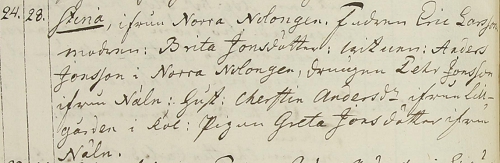 24. 28. Stina, ifrån Norra Nolongen. Fadren Eric Larsson
modren: Brita Jonsdotter: witnen: Anders
Jonsson i Norra Nolongen, drengen Pehr Jonsson
ifrån Näln: Gust: Cherstin Andersdr ifrån Lill-
gården i Kol: Pigan Greta Jonsdotter ifrån
Näln.